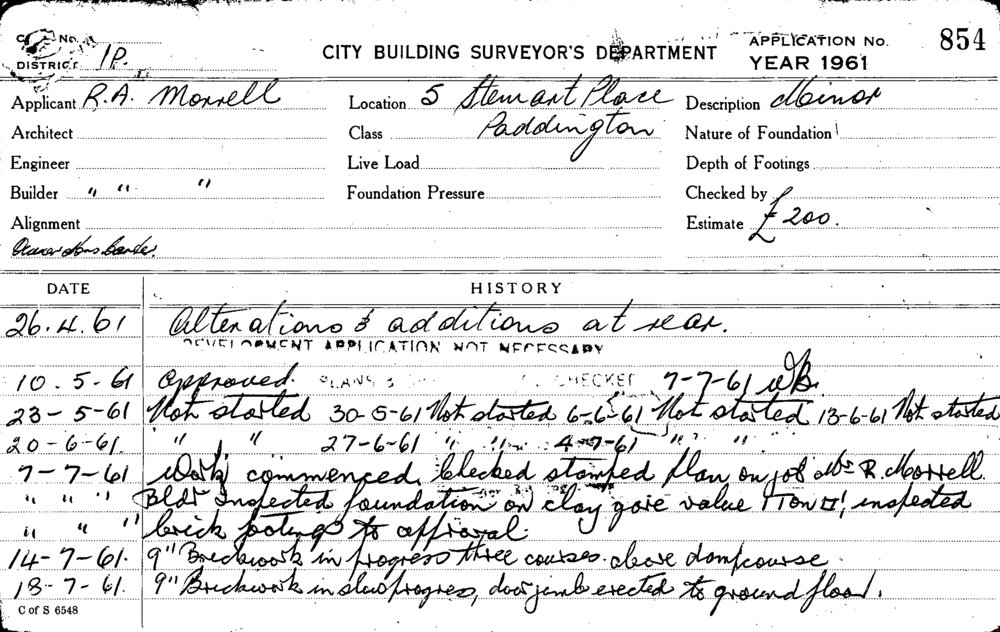 CITY BUILDING SURVEYOR'S DEPARTMENT
APPLICATION No. 854
YEAR 1961
DISTRICT 1P.
Applicant R.A. Morrell
Location 5 Stewart Place
Paddington
Description Minor
Architect
Class
Nature of Foundation
Engineer
Live Load
Depth of Footings
Builder " " "
Foundation Pressure
Checked by
Alignment
Estimate £200.
DATE HISTORY
26.4.61 Alterations & additions at rear.
DEVELOPMENT APPLICATION NOT NECESSARY
10.5-61 Approved. PLANS CHECKED 7-7-61 WB.
23-5-61 Not started 30-5-61 Not started 6-6-61 Not started 13-6-61 Not started
20-6-61. " " 27-6-61 " " 4-7-61 " "
7-7-61 Work commenced. Checked stamped plan on job Mr R. Morrell.
" " " Bldr Inspected foundation on clay gave value 1 Ton □' inspected
" " " brick footings to approval.
14-7-61. 9" Brickwork in progress three courses above dampcourse.
18-7-61. 9" Brickwork in slow progress, door jamb erected to ground floor.
C of S 6548